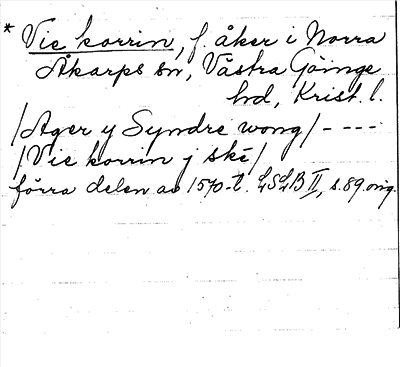 * Vie korrin, f. åker i Norra
Åkarps sn, Västra Göinge
hd, Krist. l.
/Ager y Syndre wong/ ----
/Vie korrin j ske/
förra delen av 1570-t. LSLB II, s. 89 orig.